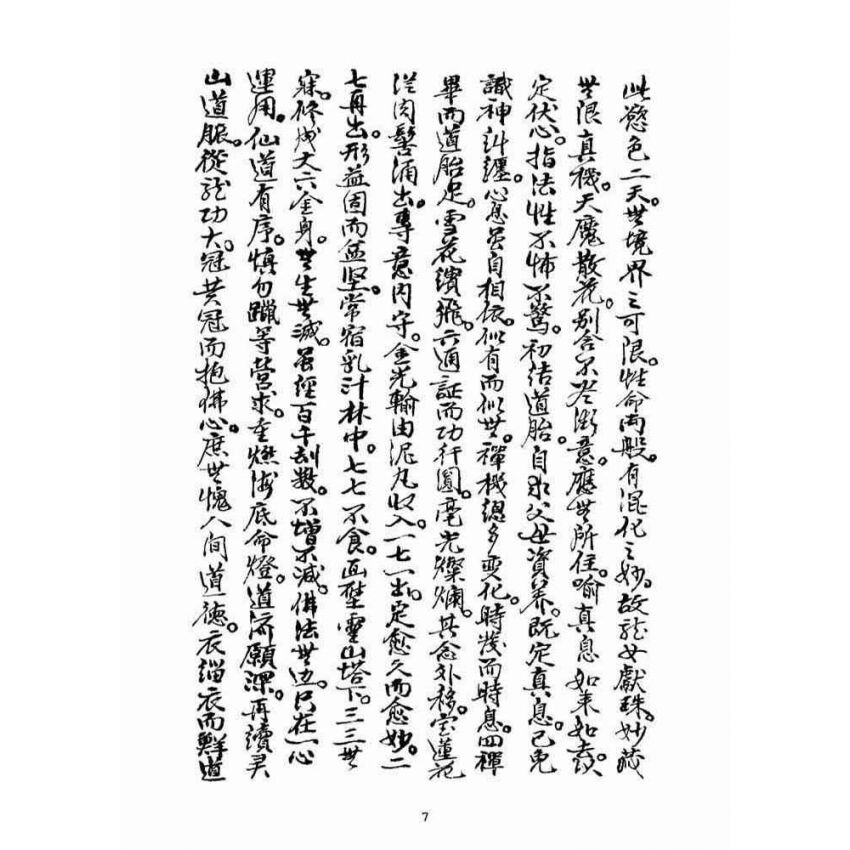 此慾色二天。無境界之可限。性命兩般。有混化之妙。故龍女獻珠。妙藏
無限真機。天魔散花。別含不盡漸意。應無所住。喻真息如來如去。以
定伏心。指法性不怖不驚。初结道胎。自求父母資养。既定真息。已免
識神糾纏。心息虽自相依。似有而似無。禪機總多变化。時茂而時息。四禪
畢而道胎足。雪花繽飛。六通証而功行圓。毫光燦爛。其愈外移。宝蓮花
從肉髻涌出。專意内守。金光輪由泥丸收入。一七一出。定愈久而愈妙。二
七再出。形益固而益坚。常宿乳汁林中。七七不食。画壁靈山塔下。三三無
寐。修成丈六金身。無生無滅。虽經百千刮数。不增不減。佛法無边。只在一心
運用。仙道有序。慎勿躐等營求。重燃海底命燈。道濟願深。再續灵
山道脹。從龍功大。冠黄冠而抱佛心。庶無愧人间道德。衣缁衣而鮮道
7